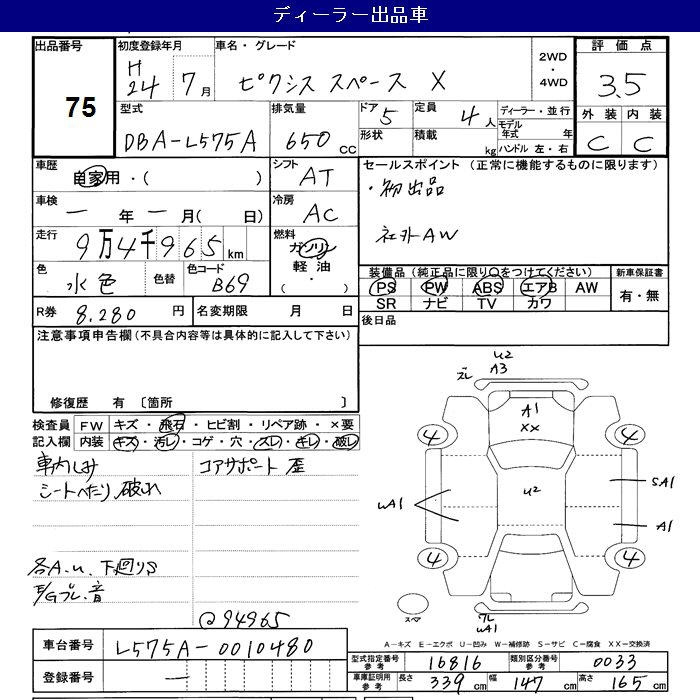 ディーラー出品車
出品番号 75
初度登録年月 H24 7月
車名・グレード ピクシス スペース X
2WD・4WD
評価点 3.5
型式 DBA-L575A
排気量 650 cc
ドア 5
形状
定員 4人
積載 kg
ディーラー・並行
モデル年式 年
ハンドル 左・右
外装 C 内装 C
車歴 自家用・( )
シフト AT
セールスポイント (正常に機能するものに限ります)
・初出品
社外AW
車検 ー年ー月( 日)
冷房 AC
走行 9万4千965km
燃料 ガソリン 軽油 ・( )
色 水色 色替 色コード B69
装備品(純正品に限り○をつけてください)
新車保証書
PS PW ABS エアB AW
有・無
SR ナビ TV カワ
R券 8,280円
名変期限 月 日
後日品
注意事項申告欄(不具合内容等は具体的に記入して下さい)
修復歴 有 〔箇所 〕
検査員 FW キズ・飛石・ヒビ割・リペア跡・×要
記入欄 内装 キズ・汚レ・コゲ・穴・スレ・キレ・破レ
車内しみ
シートへたり、破れ
コアサポート 歪
各A.u、下廻りS
E/Gブレ、音
94965
U2
A3
ズレ
A1
XX
4
4
U2
SA1
UA1
A1
4
4
スペア
ワレ
UA1
A-キズ E-エクボ U-凹み W-補修跡 S-サビ C-腐食 XX-交換済
車台番号 L575A-0010480
型式指定番号 参考 16816 類別区分番号 参考 0033
登録番号 ー
車庫証明用 参考 長さ 339cm 幅 147cm 高さ 165cm